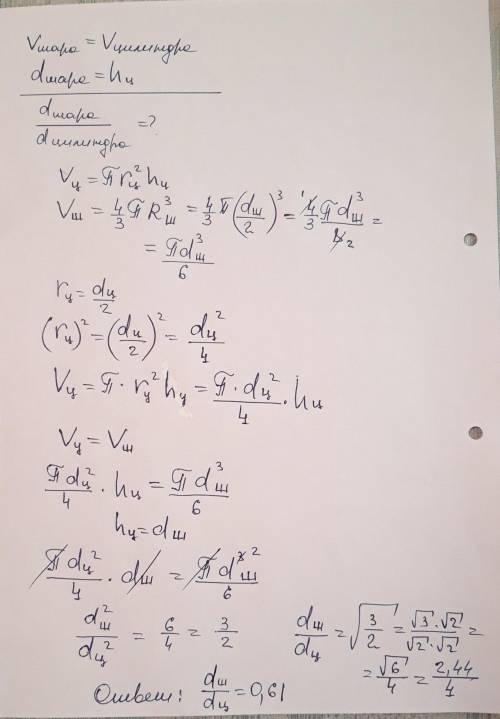 Vшара = Vцилиндра
dшара = hц
dшара/dцилиндра = ?
Vц = πrц²hц
Vш = 4/3 πRш³ = 4/3 π(dш/2)³ = 4/3 πdш³/8 2 =
= πdш³/6
rц = dц/2
(rц)² = (dц/2)² = dц²/4
Vц = π · rц²hц = π · dц²/4 · hц
Vц = Vш
πdц²/4 · hц = πdш³/6
hц = dш
πdц²/4 · dш = πdш³ ²/6
dш²/dц² = 6/4 = 3/2
dш/dц = √3/2 = √3 · √2/√2 · √2 =
= √6/4 = 2,44/4
Ответ: dш/dц = 0,61